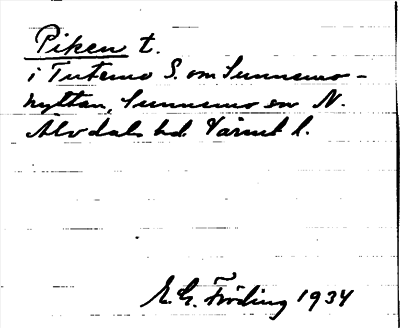 Piken t.
i Tutemo S. om Sunnemo-
hyttan, Sunnemo sn N.
Älvdals hd. Värml l.
E. G. Fröding 1934